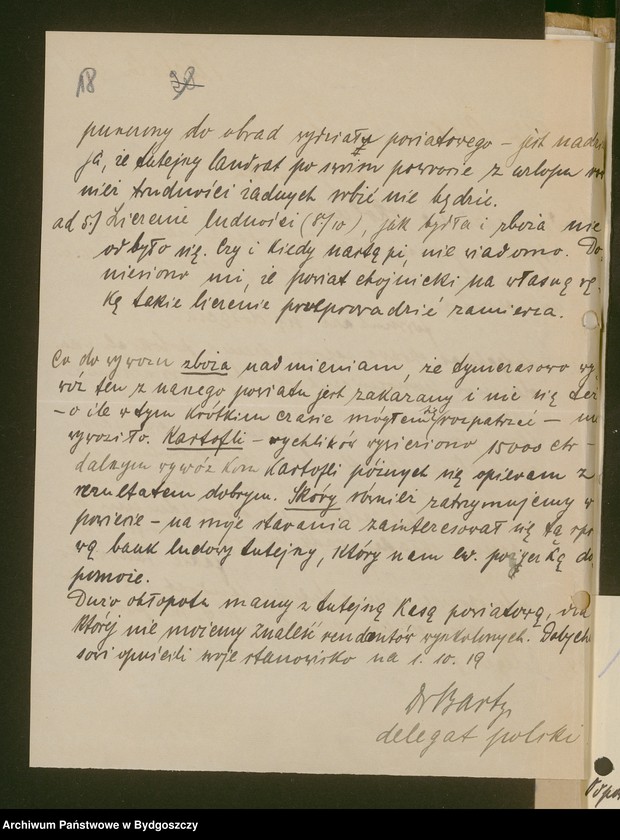 18 38
do obrad wydziału powiatowego - jest nadzie
ja, że tutejszy landrat po swoim powrocie z urlopu
nież trudności żadnych robić nie będzie.
ad 5.) Liczenie ludności (8/10), jak bydła i zboża nie
odbyło się. Czy i kiedy nastąpi, nie wiadomo. Do
niesiono mi, że powiat chojnicki na własną rę-
kę takie liczenie przeprowadzić zamierza.
Co do wywozu zboża nadmieniam, że tymczasowo wy
wóz ten z naszego powiatu jest zakazany i nic się też
- o ile w tym krótkim czasie mógłem rozpatrzeć - nie
wywoziło. Kartofli - rychlików wywieziono 15000 ctr -
dalszym wywózkom kartofli późnych się opieram z
rezultatem dobrym. Skóry również zatrzymujemy w
powiecie - na moje starania zainteresował się tą spra
wą bank ludowy tutejszy, który nam ew. pożyczką do
pomoże.
Dużo kłopotu mamy z tutejszą Kasą powiatową, dla
której nie możemy znaleść rendantów wyszkolonych. Dotychcza
sowi opuścili swoje stanowisko na 1. 10. 19
Dr Bartz,
delegat polski
Archiwum Państwowe w Bydgoszczy